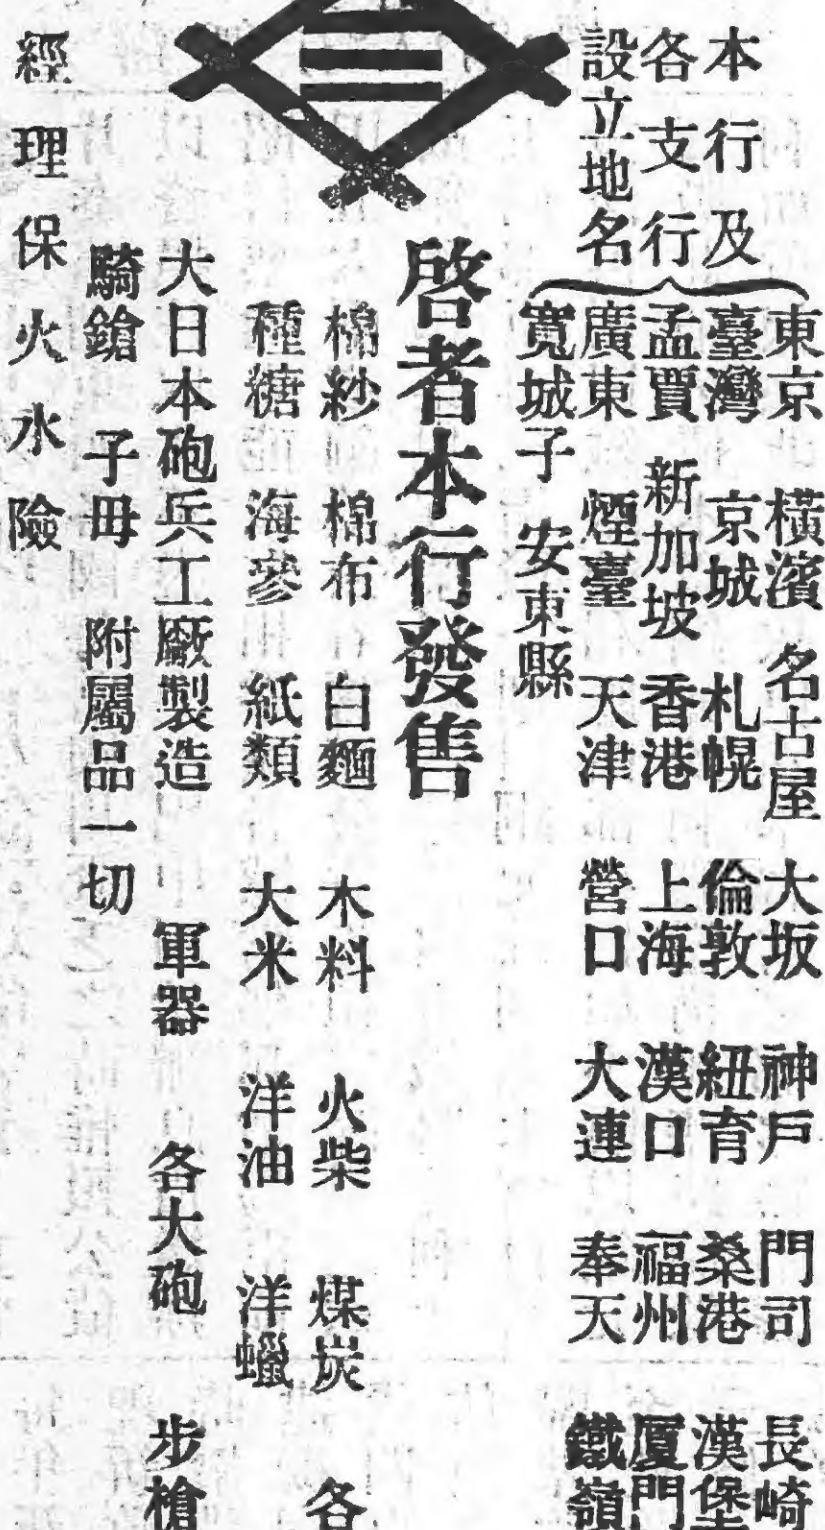 本行及
各支行
設立地名
東京 橫濱 名古屋 大坂 神戶 門司 長崎
臺灣 京城 札幌 倫敦 紐育 桑港 漢堡
孟買 新加坡 香港 上海 漢口 福州 厦門
廣東 煙臺 天津 營口 大連 奉天 鐵嶺
寬城子 安東縣
三
啓者本行發售
棉紗 棉布 白麵 木料 火柴 煤炭 各
種糖 海參 紙類 大米 洋油 洋蠟
大日本砲兵工廠製造 軍器 各大砲 步槍
騎鎗 子毋 附屬品一切
經理保火水險